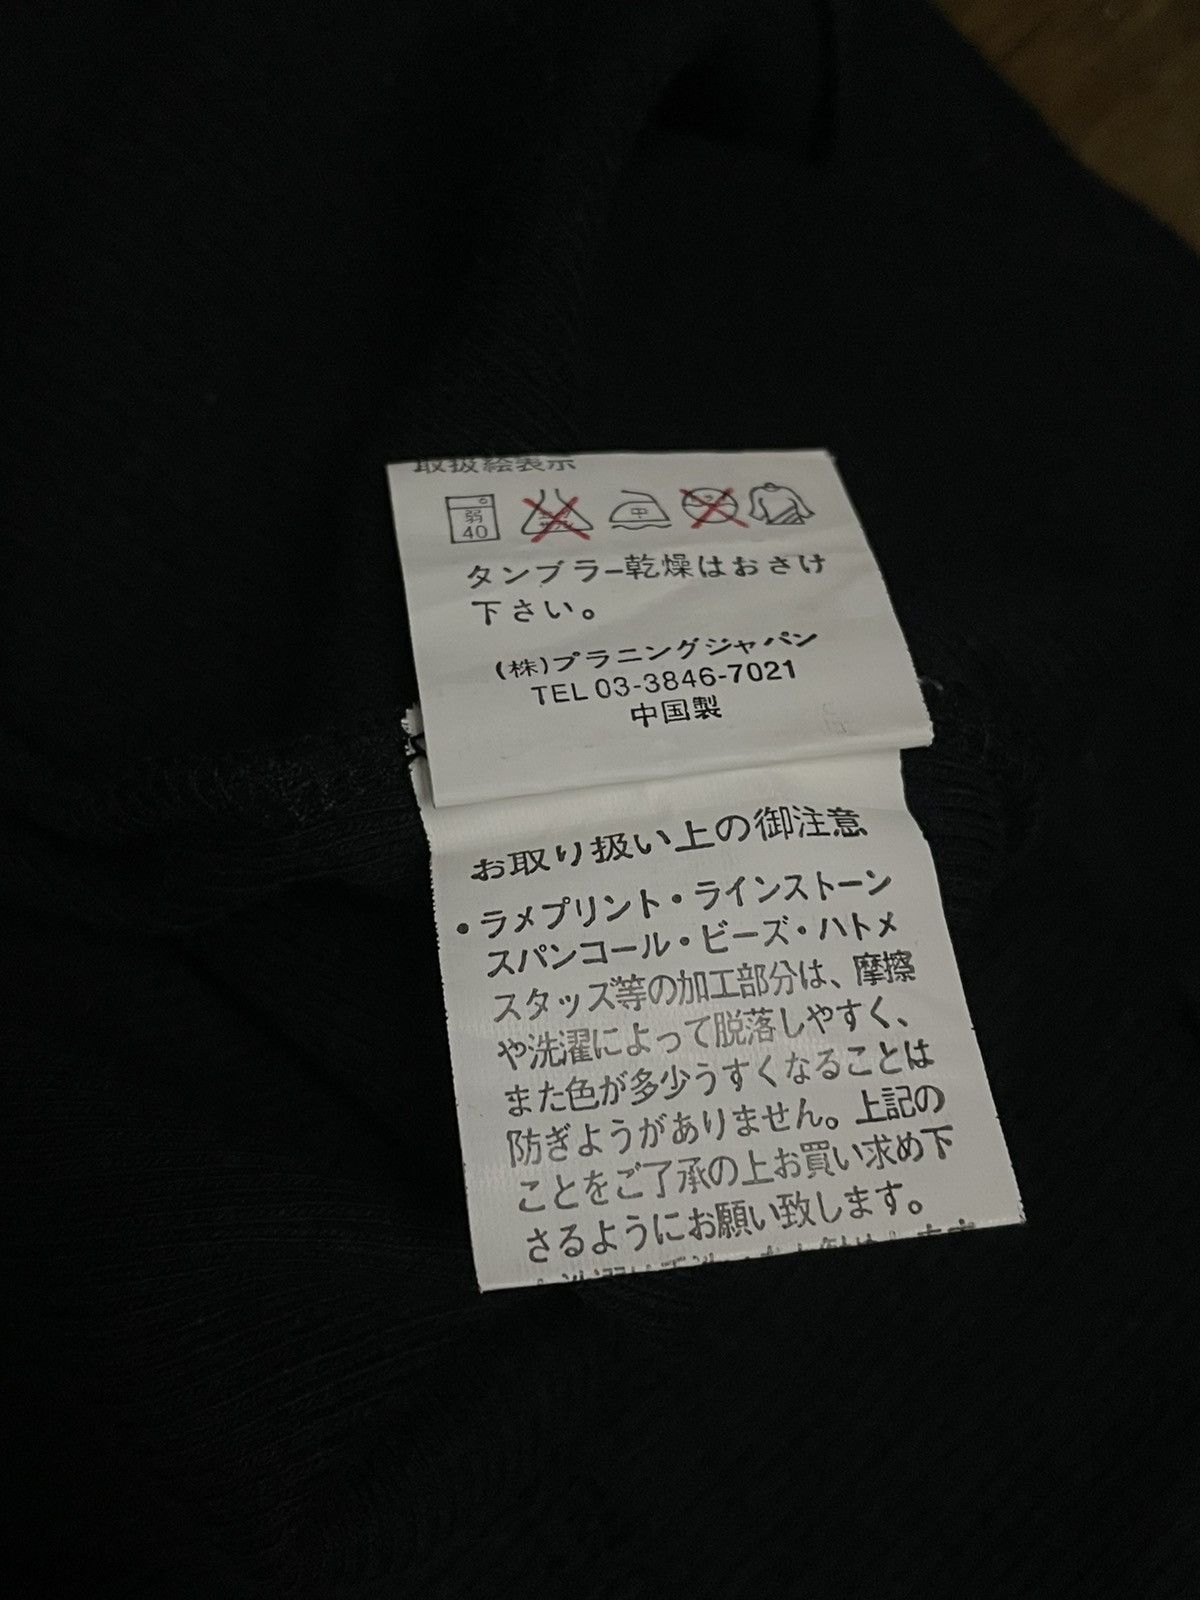 取扱絵表示
弱
40
中
タンブラー乾燥はおさけ
下さい。
(株)プラニングジャパン
TEL 03-3846-7021
中国製
お取り扱い上の御注意
・ラメプリント・ラインストーン
スパンコール・ビーズ・ハトメ
スタッズ等の加工部分は、摩擦
や洗濯によって脱落しやすく、
また色が多少うすくなることは
防ぎようがありません。上記の
ことをご了承の上お買い求め下
さるようにお願い致します。